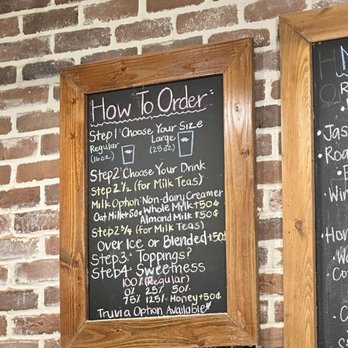 How To Order:
Step 1: Choose Your Size
Regular Large
(16oz) (25oz)
Step 2: Choose Your Drink
Step 2 1/2 (for Milk Teas)
Milk Option: Non-dairy Creamer
Oat Milk+50¢ Whole Milk+50¢
Almond Milk+50¢
Step 2 3/4 (for Milk Teas)
Over Ice or Blended+50¢
Step 3: Toppings?
Step 4: Sweetness
100% (Regular)
0% 25% 50%
75% 125% Honey+50¢
Truvia Option Available*
N
Jas
Roa